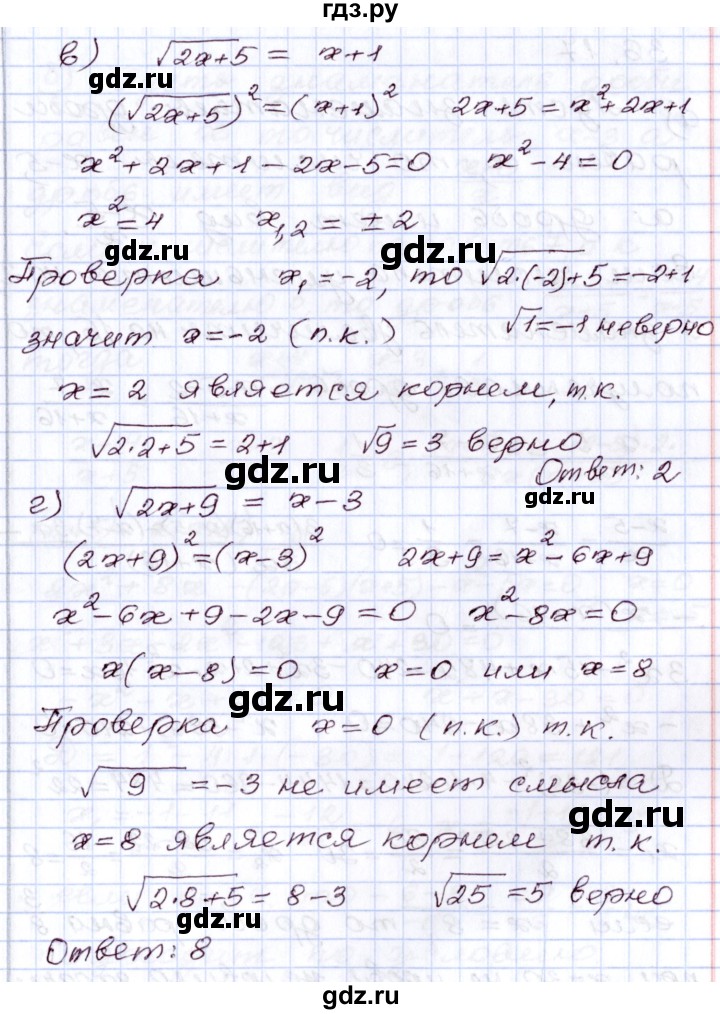 гдз.ру
в) √(2x+5) = x+1
gdz.ru
(√(2x+5))² = (x+1)² 2x+5 = x²+2x+1
x²+2x+1-2x-5=0 x²-4=0
x²=4 x₁,₂ = ±2
gdz.ru
Проверка x₁=-2, то √(2·(-2)+5) = -2+1
значит x=-2 (п.к.) √1=-1 неверно
gdz.ru
x=2 является корнем, т.к.
√(2·2+5) = 2+1 √9=3 верно
gdz.ru Ответ: 2
gdz.ru
г) √(2x+9) = x-3
(2x+9)²=(x-3)² 2x+9=x²-6x+9
gdz.ru
x²-6x+9-2x-9=0 x²-8x=0
x(x-8)=0 x=0 или x=8
gdz.ru
Проверка x=0 (п.к.) т.к.
gdz.ru
√9 =-3 не имеет смысла
gdz.ru
x=8 является корнем т.к.
√(2·8+5) = 8-3 √25 =5 верно
gdz.ru
Ответ: 8
gdz.ru